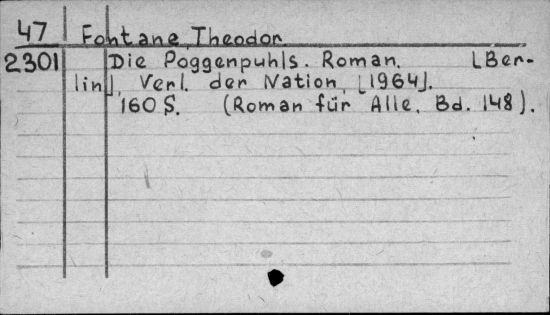 47 Fontane, Theodor
2301 Die Poggenpuhls. Roman. [Ber-
lin], Verl. der Nation, [1964].
160 S. (Roman für Alle. Bd. 148).